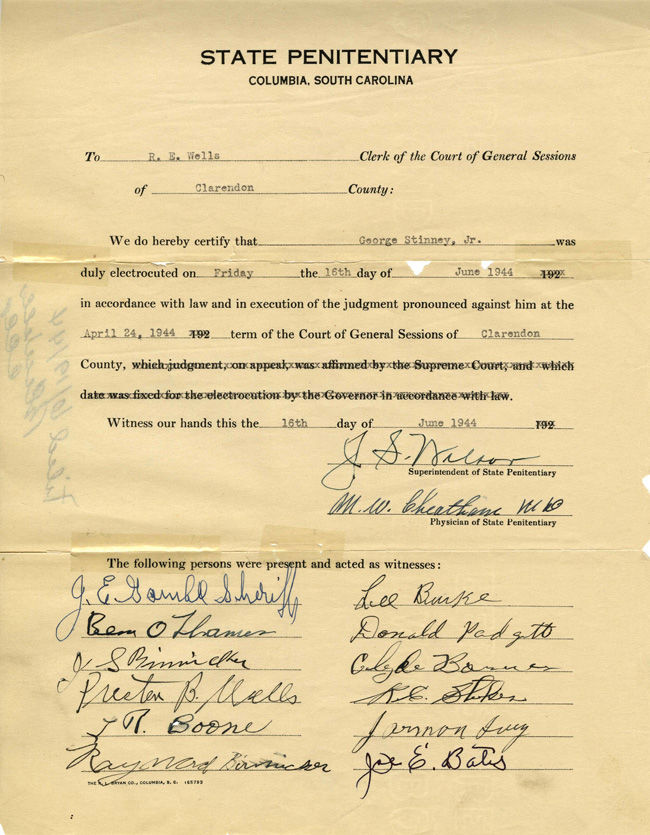 STATE PENITENTIARY
COLUMBIA, SOUTH CAROLINA
To R. E. Wells Clerk of the Court of General Sessions
of Clarendon County:
We do hereby certify that George Stinney, Jr. was
duly electrocuted on Friday the 16th day of June 1944 192
in accordance with law and in execution of the judgment pronounced against him at the
April 24, 1944 192 term of the Court of General Sessions of Clarendon
County, which judgment, on appeal, was affirmed by the Supreme Court, and which
date was fixed for the electrocution by the Governor in accordance with law.
Witness our hands this the 16th day of June 1944 192
J. S. Wilson
Superintendent of State Penitentiary
M. W. Cheatham MD
Physician of State Penitentiary
The following persons were present and acted as witnesses:
J. E. Gamble Sheriff
Lee Burke
Ben O Thames
Donald Padgett
J S
Clyde
Preston B. Wells
R. E. Stokes
J R. Boone
Raymond
Joe E. Bates
THE R. L. BRYAN CO., COLUMBIA, S. C. 165793
Filed 6/19/44